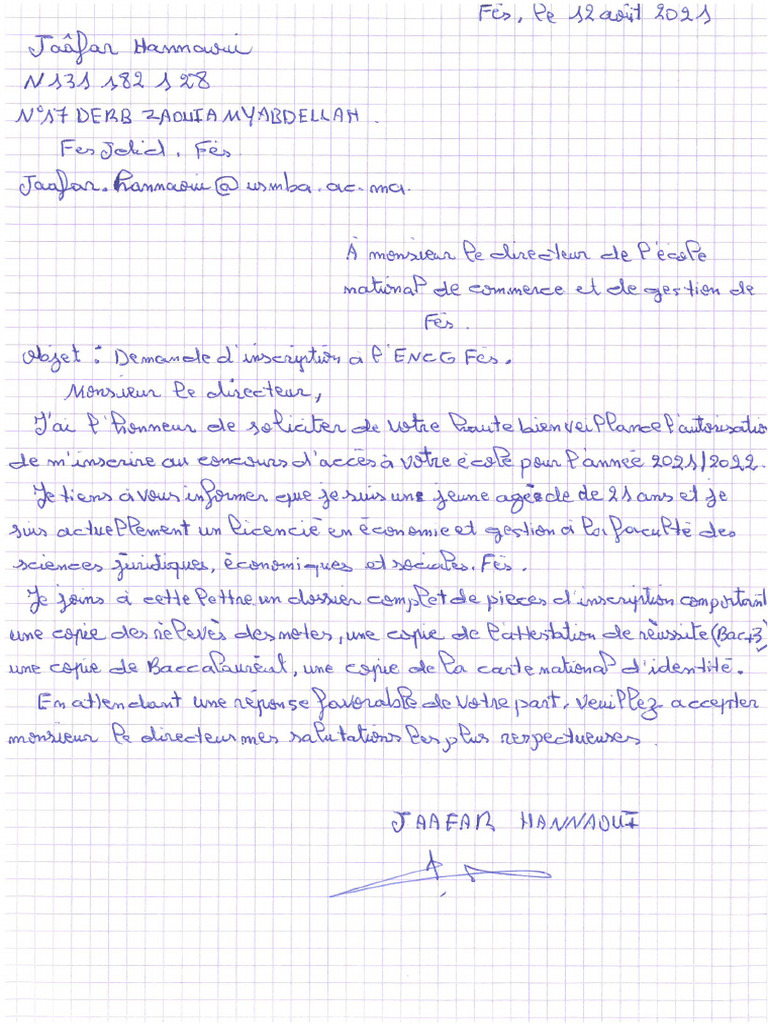 Fès, le 12 août 2021
Jaâfar Hannaoui
N131 182 128
N°17 DERB ZAOUIA MYABDELLAH.
Fes Jdid. Fès
Jaafar.hannaoui@usmba.ac.ma.
À monsieur le directeur de l'école
national de commerce et de gestion de
Fès.
Objet : Demande d'inscription à l'ENCG Fès.
Monsieur le directeur,
J'ai l'honneur de soliciter de votre haute bienveillance l'autorisation
de m'inscrire au concours d'accès à votre école pour l'année 2021/2022.
Je tiens à vous informer que je suis une jeune agée de de 21 ans et je
suis actuellement un licencié en économie et gestion à la faculté des
sciences juridiques, économiques et sociales. Fès.
Je joins à cette lettre un dossier complet de pièces d'inscription comportant
une copie des relevés des notes, une copie de l'attestation de réussite (Bac+3)
une copie de Baccalauréat, une copie de la carte national d'identité.
En attendant une réponse favorable de votre part, veuillez accepter
monsieur le directeur mes salutations les plus respectueuses.
JAAFAR HANNAOUI